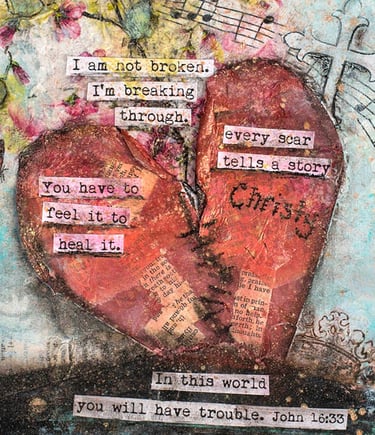 I am not broken.
I'm breaking
through.
every scar
tells a story
Christy
You have to
feel it to
heal it.
In this world
you will have trouble. John 16:33